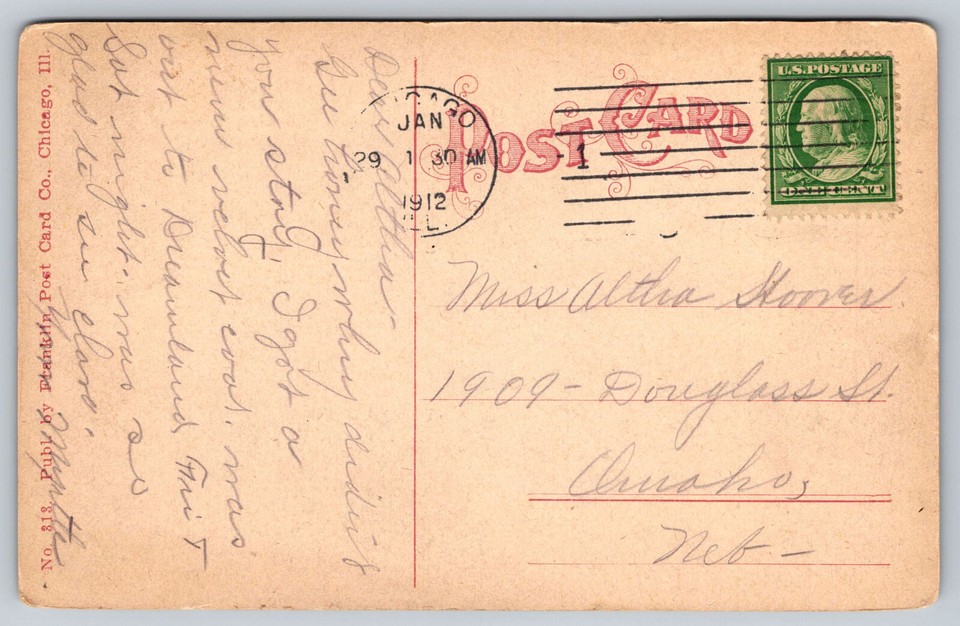 POST CARD
U.S. POSTAGE
ONE CENT
CHICAGO
JAN
29 1 30 AM
1912
ILL.
1
Dear Altha-
Gee honey why didn't
you stay, I got a
new velvet coat, was
out to Dreamland Fri &
Sat night. was so
glad to see Clara.
Myrtle
Miss Altha Hoover
1909- Douglass St.
Omaha,
Neb-
No. 313. Publ. by Franklin Post Card Co., Chicago, Ill.